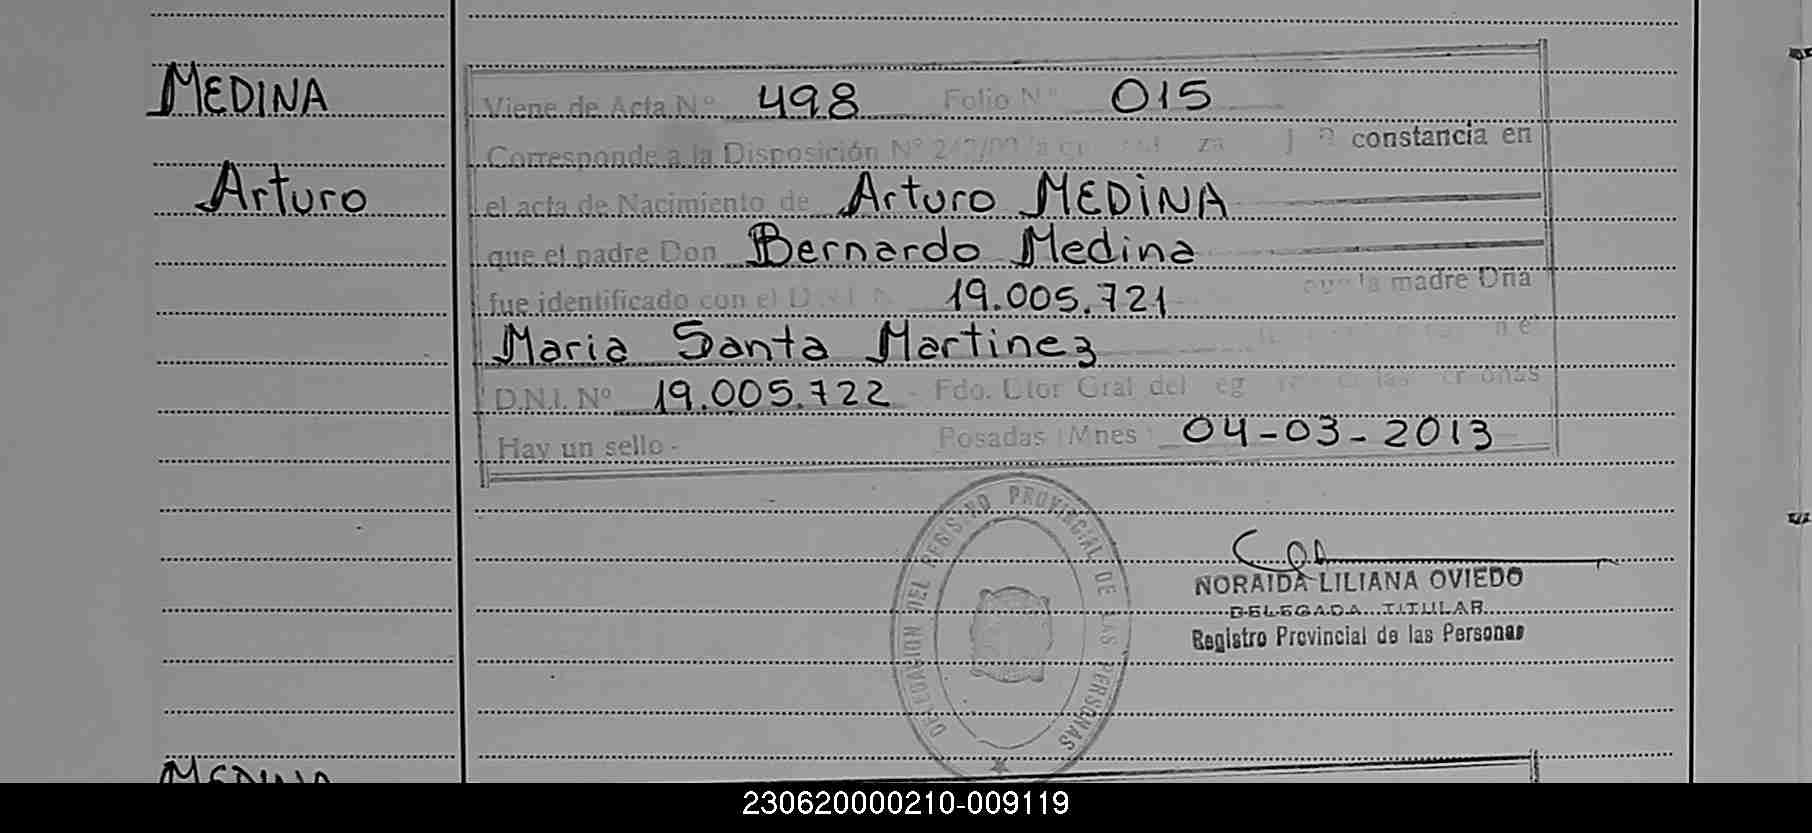 MEDINA
Arturo
Viene de Acta Nº 498 Folio Nº 015
Corresponde a la Disposición Nº constancia en
el acta de Nacimiento de Arturo MEDINA
que el padre Don Bernardo Medina
fue identificado con el D.N.I. Nº 19.005.721 que la madre Dña
Maria Santa Martinez
D.N.I. Nº 19.005.722 - Fdo. Dtor Gral del
Hay un sello - Posadas (Mnes) 04-03-2013
DELEGACION DEL REGISTRO PROVINCIAL DE LAS PERSONAS
NORAIDA LILIANA OVIEDO
DELEGADA TITULAR
Registro Provincial de las Personas
MEDINA
230620000210-009119